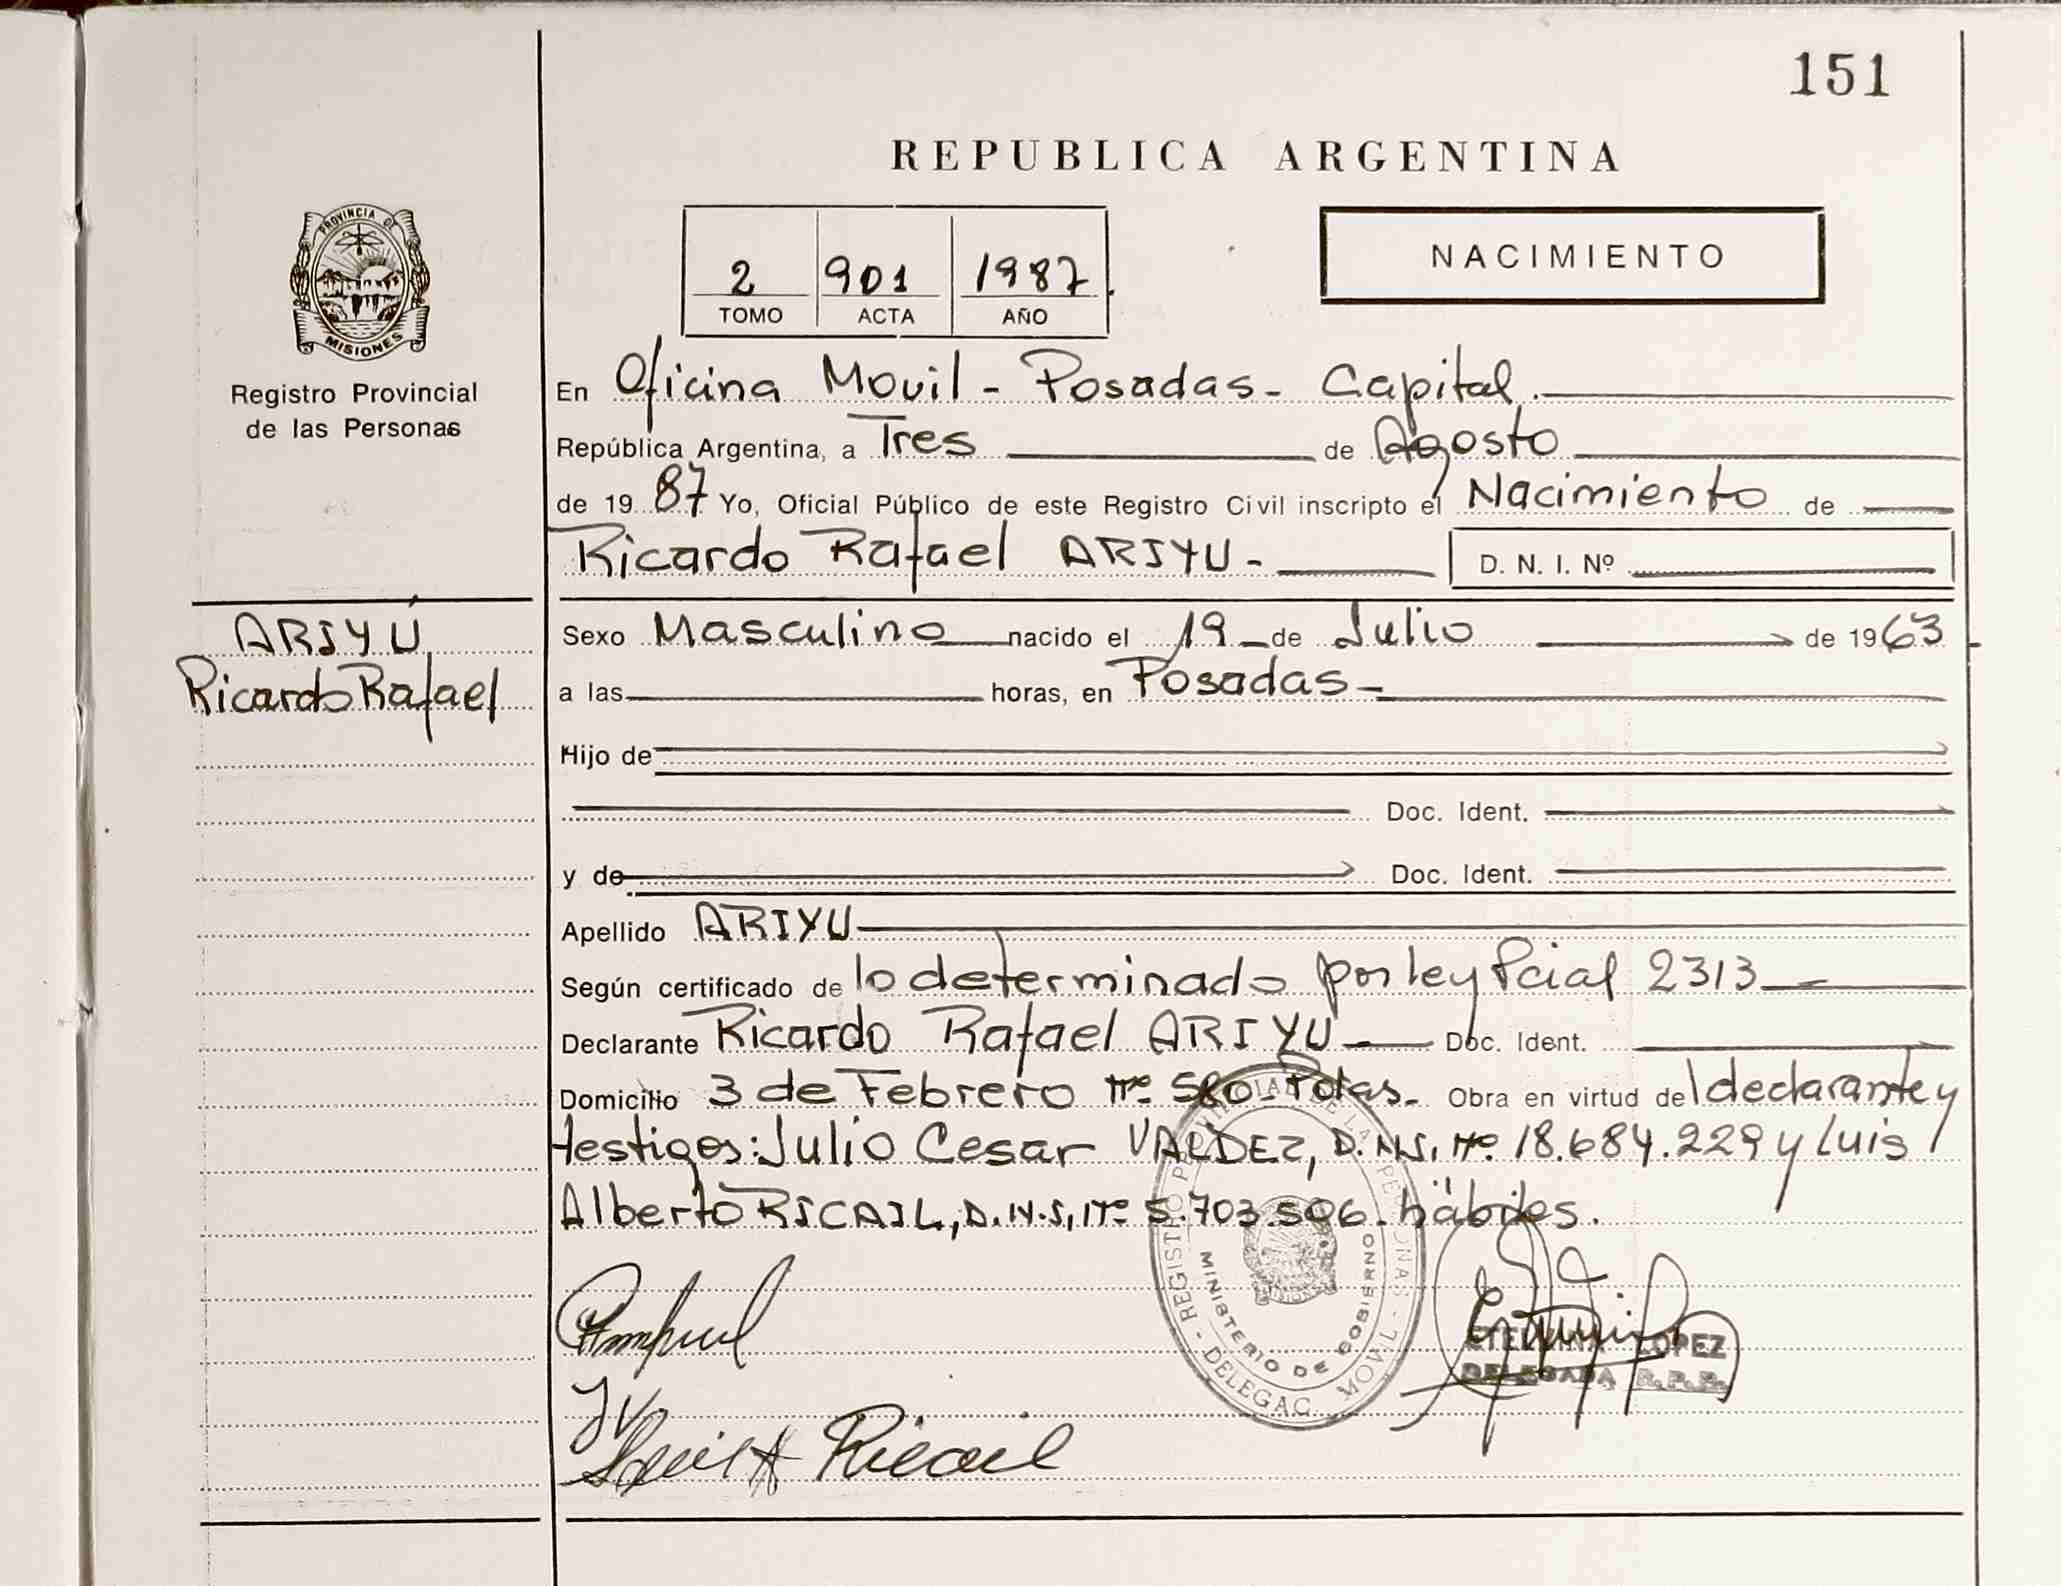 151
REPUBLICA ARGENTINA
PROVINCIA DE
MISIONES
Registro Provincial
de las Personas
2 901 1987
TOMO ACTA AÑO
NACIMIENTO
En Oficina Movil - Posadas - Capital.
República Argentina, a Tres de Agosto
de 1987 Yo, Oficial Público de este Registro Civil inscripto el Nacimiento de
Ricardo Rafael ARIYU - D. N. I. Nº
ARIYÚ
Ricardo Rafael
Sexo Masculino nacido el 19 de Julio de 1963
a las horas, en Posadas -
Hijo de
Doc. Ident.
y de Doc. Ident.
Apellido ARIYU
Según certificado de lo determinado por ley Pcial 2313
Declarante Ricardo Rafael ARIYU Doc. Ident.
Domicilio 3 de Febrero Nº 580 - Pdas. Obra en virtud del declarante y
testigos: Julio Cesar VALDEZ, D.N.I. Nº 18.684.229 y Luis
Alberto RICAIL, D.N.I. Nº 5.703.506. hábiles.
REGISTRO PROVINCIAL DE LAS PERSONAS - DELEGAC. MOVIL -
MINISTERIO DE GOBIERNO
LOPEZ
DELEGADA R.P.P.
Luis A Ricail